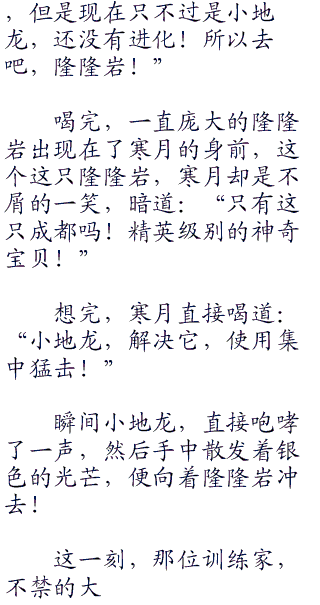 ，但是现在只不过是小地
龙，还没有进化！所以去
吧，隆隆岩！”
喝完，一直庞大的隆隆
岩出现在了寒月的身前，这
个这只隆隆岩，寒月却是不
屑的一笑，暗道：“只有这
只成都吗！精英级别的神奇
宝贝！”
想完，寒月直接喝道：
“小地龙，解决它，使用集
中猛击！”
瞬间小地龙，直接咆哮
了一声，然后手中散发着银
色的光芒，便向着隆隆岩冲
去！
这一刻，那位训练家，
不禁的大